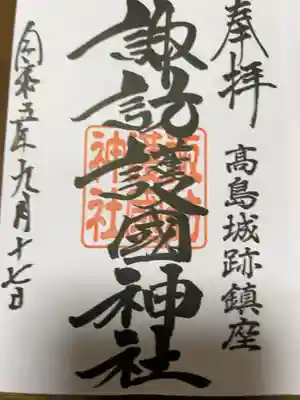 奉拝
高島城跡鎮座
諏訪護國神社
諏訪護國神社
令和五年九月十七日